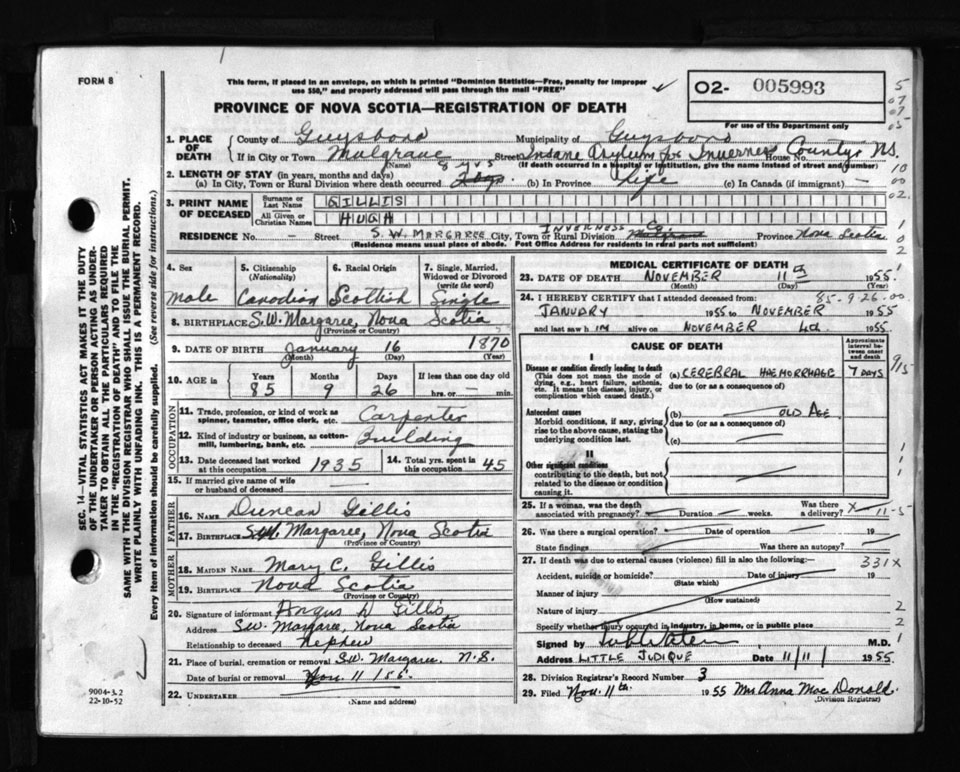 FORM 8
This form, if placed in an envelope, on which is printed "Dominion Statistics—Free, penalty for improper
use $50," and properly addressed will pass through the mail "FREE"
PROVINCE OF NOVA SCOTIA—REGISTRATION OF DEATH
O2- 005993
For use of the Department only
1. PLACE OF DEATH County of Guysboro Municipality of Guysboro
If in City or Town Mulgrave Street Insane Asylum for Inverness County, N.S. House No.
(Name) (If death occurred in a hospital or institution, give the name instead of street and number)
2. LENGTH OF STAY (in years, months and days)
(a) In City, Town or Rural Division where death occurred 8 yrs (b) In Province Life (c) In Canada (if immigrant) —
3. PRINT NAME OF DECEASED Surname or Last Name GILLIS
All Given or Christian Names HUGH
RESIDENCE No. — Street S.W. MARGAREE Town or Rural Division INVERNESS Co. Province Nova Scotia
(Residence means usual place of abode. Post Office Address for residents in rural parts not sufficient)
4. Sex 5. Citizenship (Nationality) 6. Racial Origin 7. Single, Married, Widowed or Divorced (write the word)
Male Canadian Scottish Single
8. BIRTHPLACE S.W. Margaree, Nova Scotia
(Province or Country)
9. DATE OF BIRTH January 16 1870
(Month) (Day) (Year)
10. AGE in Years Months Days If less than one day old
85 9 26 hrs. or — min.
OCCUPATION
11. Trade, profession, or kind of work as spinner, teamster, office clerk, etc. Carpenter
12. Kind of industry or business, as cotton-mill, lumbering, bank, etc. Building
13. Date deceased last worked at this occupation 1935 14. Total yrs. spent in this occupation 45
15. If married give name of wife or husband of deceased
FATHER
16. NAME Duncan Gillis
17. BIRTHPLACE S.W. Margaree, Nova Scotia
(Province or Country)
MOTHER
18. MAIDEN NAME Mary C. Gillis
19. BIRTHPLACE Nova Scotia
(Province or Country)
20. Signature of informant Angus D Gillis
Address S.W. Margaree, Nova Scotia
Relationship to deceased nephew
21. Place of burial, cremation or removal S.W. Margaree. N.S.
Date of burial or removal Nov. 11
22. UNDERTAKER
(Name and address)
MEDICAL CERTIFICATE OF DEATH
23. DATE OF DEATH NOVEMBER 11 1955
(Month) (Day)
85-9-26.00
24. I HEREBY CERTIFY that I attended deceased from:
JANUARY 1955 to NOVEMBER 1955
and last saw him alive on NOVEMBER 4th 1955
CAUSE OF DEATH
Approximate interval between onset and death
I
Disease or condition directly leading to death
(This does not mean the mode of dying, e.g., heart failure, asthenia, etc. It means the disease, injury, or complication which caused death.)
(a) CEREBRAL HAEMORRHAGE 7 DAYS
due to (or as a consequence of)
Antecedent causes
Morbid conditions, if any, giving rise to the above cause, stating the underlying condition last.
(b) OLD AGE
due to (or as a consequence of)
(c)
II
Other significant conditions
contributing to the death, but not related to the disease or condition causing it.
25. If a woman, was the death associated with pregnancy? Duration weeks. Was there a delivery?
26. Was there a surgical operation? Date of operation 19
State findings Was there an autopsy?
27. If death was due to external causes (violence) fill in also the following:—
331X
Accident, suicide or homicide? Date of injury 19
(State which)
Manner of injury
(How sustained)
Nature of injury
Specify whether injury occurred in industry, in home, or in public place
Signed by M.D.
Address LITTLE JUDIQUE Date 11/11 1955.
28. Division Registrar's Record Number 3
29. Filed Nov. 11th. 1955 Mrs Anna MacDonald.
(Division Registrar)
9004-3.2
22-10-52
SEC. 14—VITAL STATISTICS ACT MAKES IT THE DUTY
OF THE UNDERTAKER OR PERSON ACTING AS UNDER-
TAKER TO OBTAIN ALL THE PARTICULARS REQUIRED
IN THE "REGISTRATION OF DEATH" AND TO FILE THE
SAME WITH THE DIVISION REGISTRAR WHO SHALL ISSUE THE BURIAL PERMIT.
WRITE PLAINLY WITH UNFADING INK. THIS IS A PERMANENT RECORD.
Every item of information should be carefully supplied. (See reverse side for instructions.)